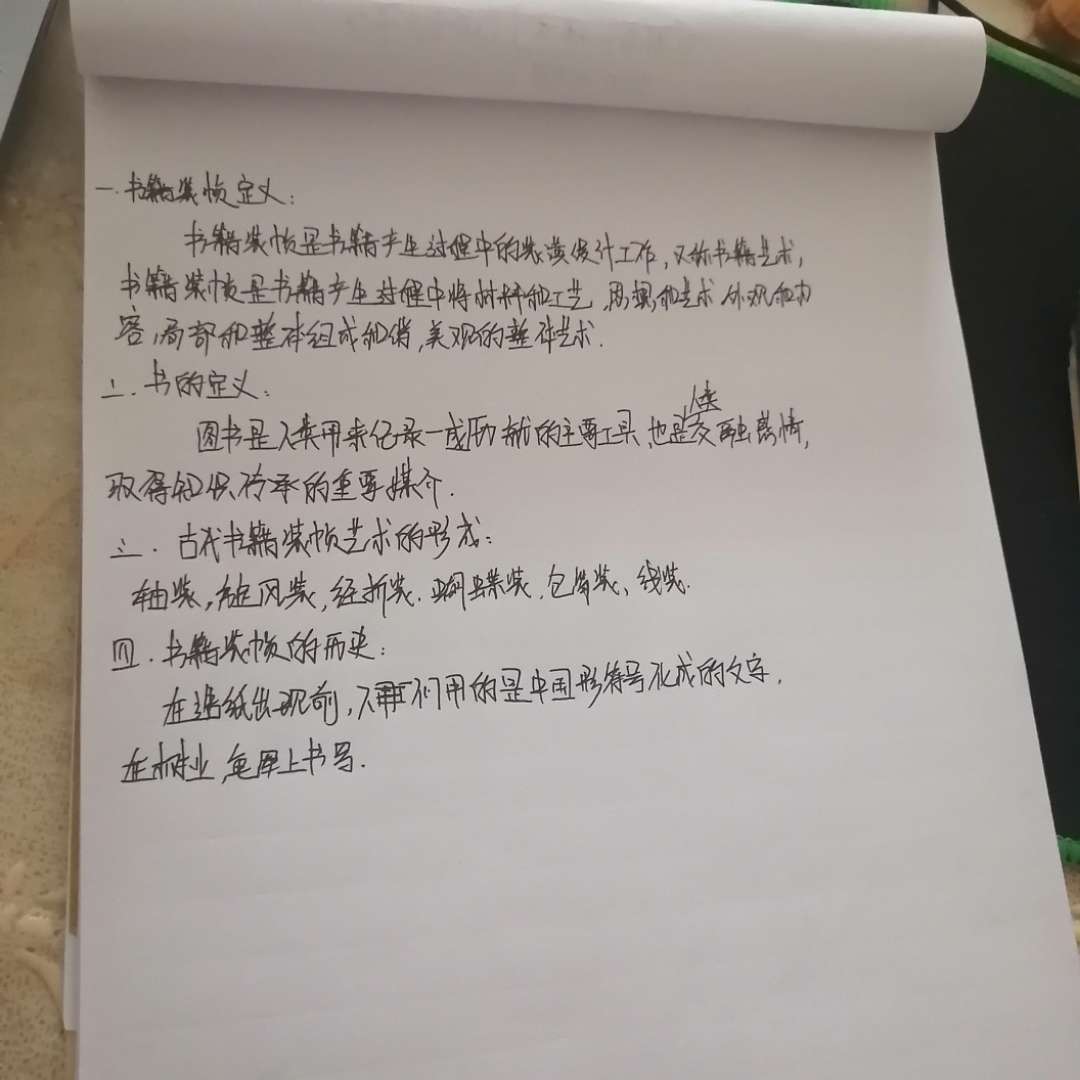 一.书籍装帧定义:
书籍装帧是书籍产生过程中的装潢设计工作,又称书籍艺术,
书籍装帧是书籍产生过程中将材料和工艺,思想和艺术 外观和内
容,局部和整体组成和谐,美观的整体艺术.
二.书的定义:
图书是人类用来纪录一成历献的主要工具,也是人类交融感情,
取得知识传承的重要媒介.
三.古代书籍装帧艺术的形式:
轴装,旋风装,经折装.蝴蝶装.包背装、线装.
四.书籍装帧的历史:
在造纸出现前,人们用的是中国形符号化成的文字.
在树业,龟甲上书写.